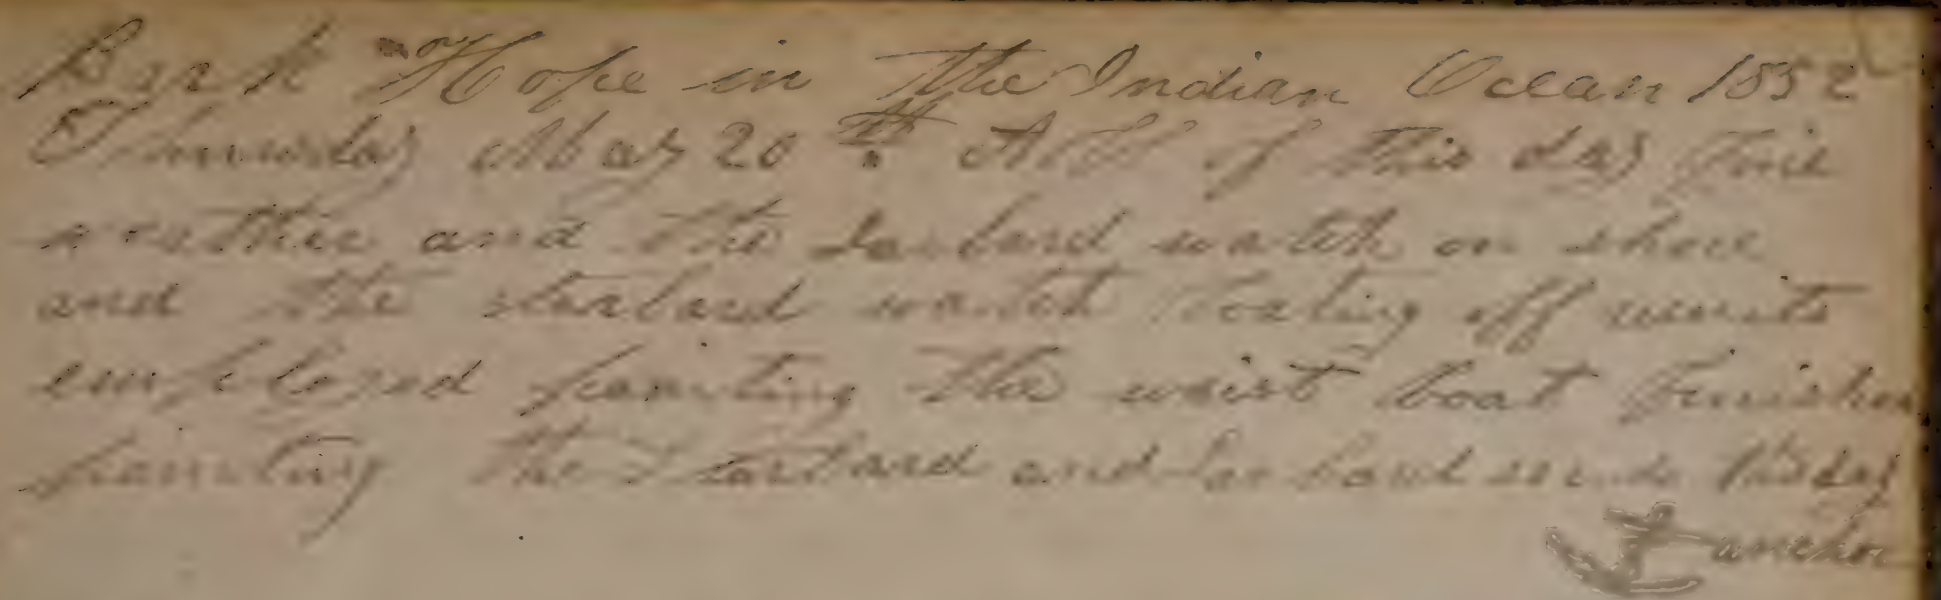 Bark Hope in the Indian Ocean 1852
Thursday May 20th All of this day fine
weather and the Larbord watch on shore
and the starbord watch Boating off
employed painting the waist boat finished
painting the Starbard and Larbord this day
anchor